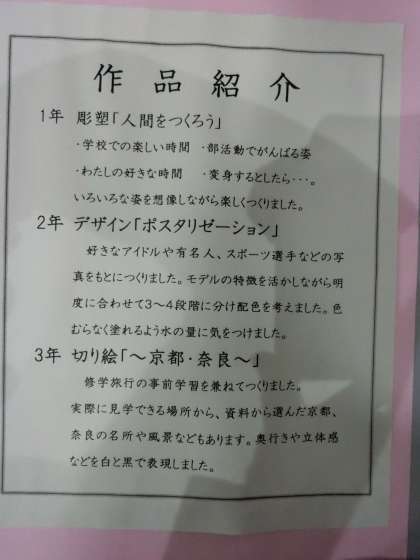 作品紹介
1年 彫塑「人間をつくろう」
・学校での楽しい時間 ・部活動でがんばる姿
・わたしの好きな時間 ・変身するとしたら・・・。
いろいろな姿を想像しながら楽しくつくりました。
2年 デザイン「ポスタリゼーション」
好きなアイドルや有名人、スポーツ選手などの写
真をもとにつくりました。モデルの特徴を活かしながら明
度に合わせて3〜4段階に分け配色を考えました。色
むらなく塗れるよう水の量に気をつけました。
3年 切り絵「〜京都・奈良〜」
修学旅行の事前学習を兼ねてつくりました。
実際に見学できる場所から、資料から選んだ京都、
奈良の名所や風景などもあります。奥行きや立体感
などを白と黒で表現しました。